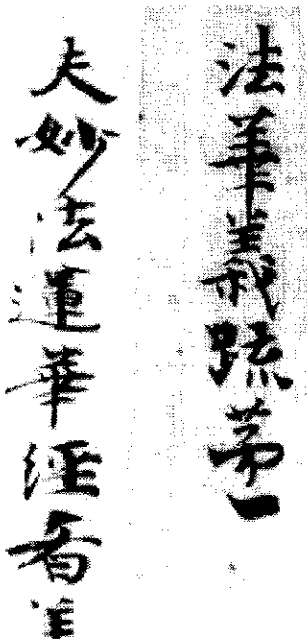 法華義疏苐一
夫妙法蓮華經者